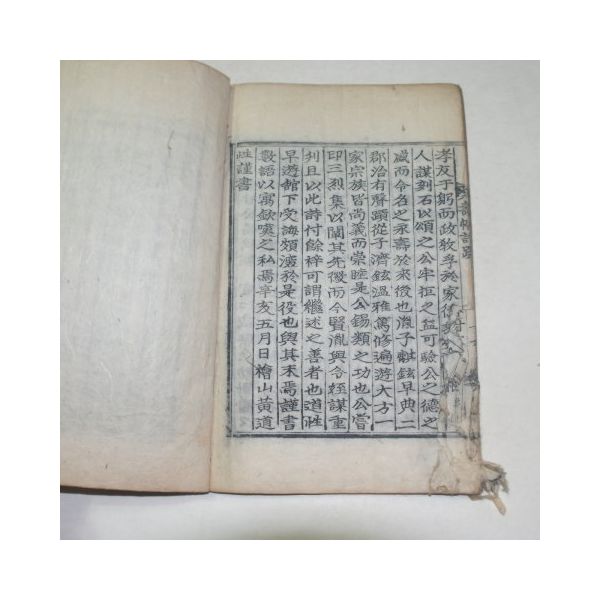 孝友于躬而政敎孚於家
人謀刻石以頌之公牢拒之益可驗公之德之
盛而令名之永壽於來後也胤子麒鉉早典二
郡治有聲蹟從子濟鉉溫雅篤修遍遊大方一
家宗族皆尚義而崇睦是公錫類之功也公嘗
印三烈集以闡其先徽而今賢胤與令姪謀重
刊且以此詩付餘梓可謂繼述之善者也道性
早遊館下受誨頗濃於是役也與其末焉謹書
數語以寓欽嘆之私焉辛亥五月日檜山黃道
性謹書